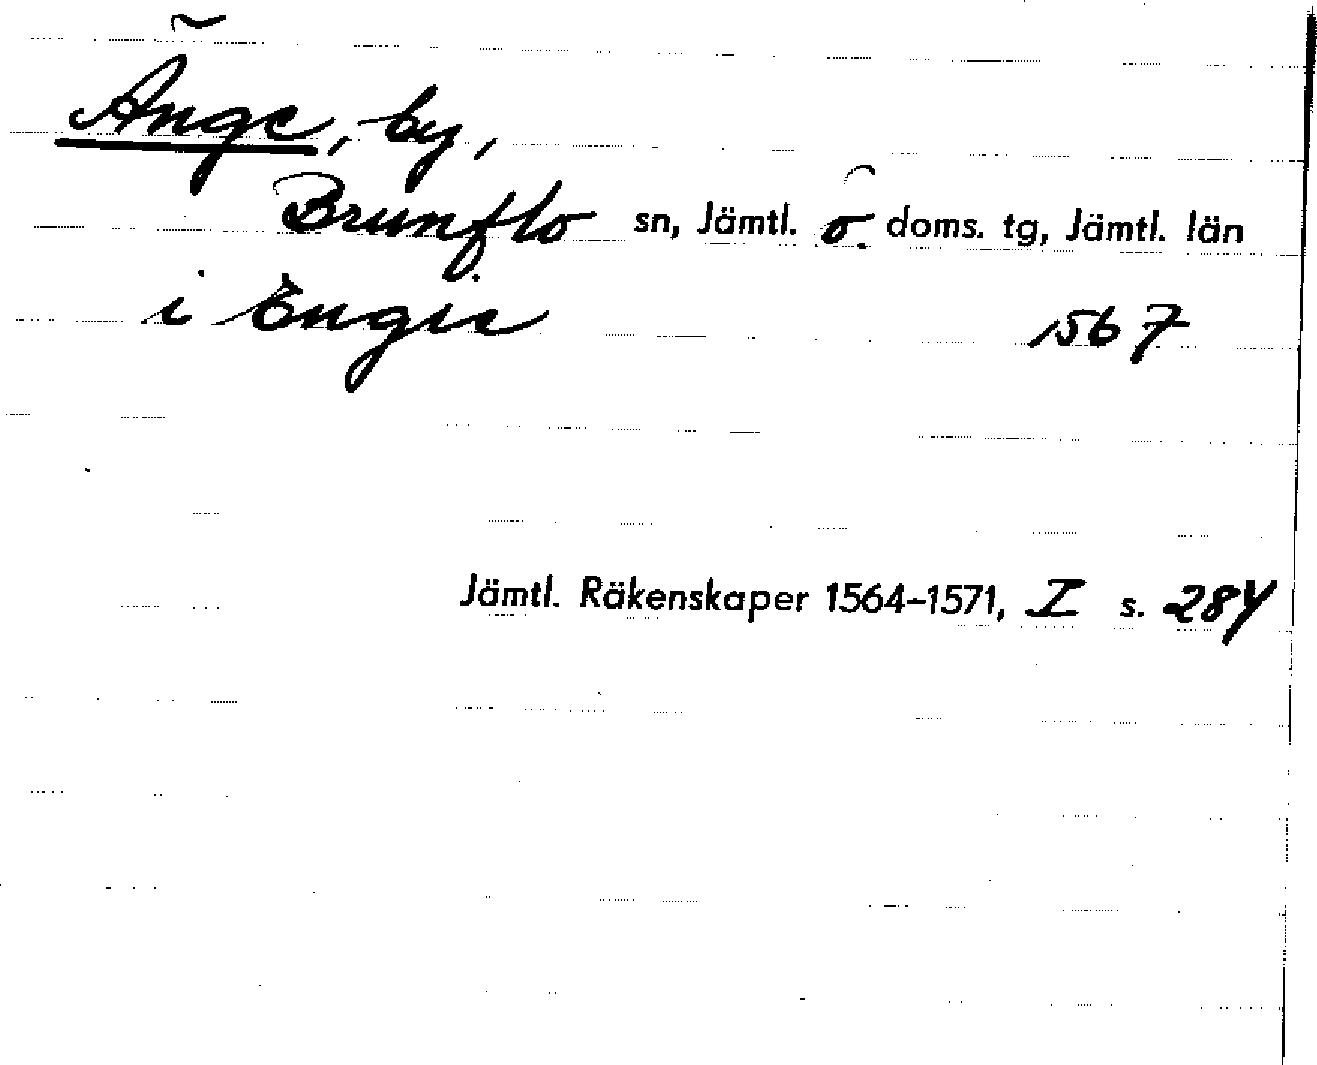 Änge, by,
Brunflo sn, Jämtl. ö. doms. tg, Jämtl. län
i Engie 1567
Jämtl. Räkenskaper 1564–1571, I s. 284